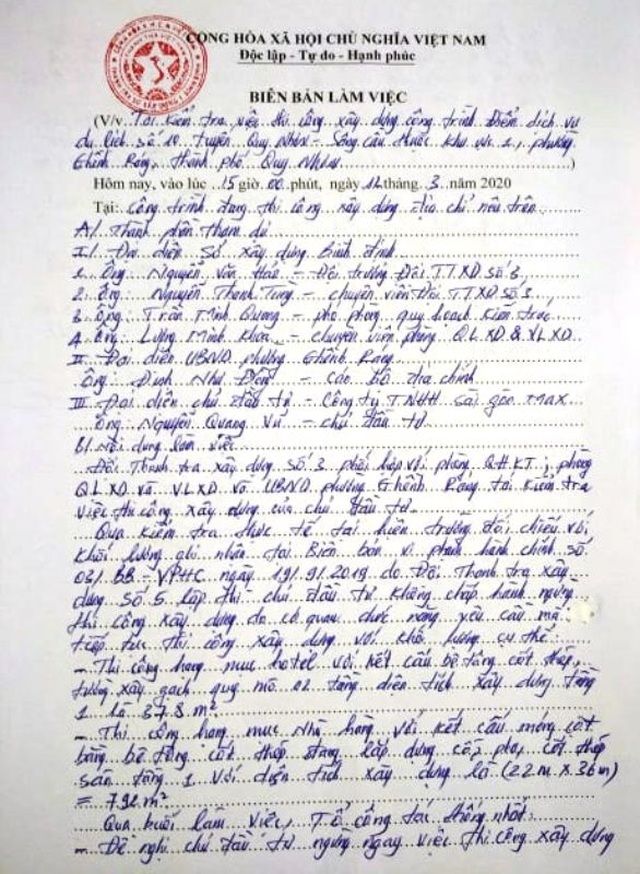 CỘNG HÒA XÃ HỘI CHỦ NGHĨA VIỆT NAM
Độc lập - Tự do - Hạnh phúc
BIÊN BẢN LÀM VIỆC
(V/v: Tái kiểm tra việc thi công xây dựng công trình Điểm dịch vụ
du lịch số 10 tuyến Quy Nhơn - Sông Cầu thuộc khu vực 1, phường
Ghềnh Ráng, thành phố Quy Nhơn)
Hôm nay, vào lúc 15 giờ 00 phút, ngày 12 tháng 3 năm 2020
Tại: Công trình đang thi công xây dựng địa chỉ nêu trên
A/. Thành phần tham dự
I./ Đại diện Sở xây dựng Bình Định
1. Ông: Nguyễn Văn - Đội trưởng Đội TTXD số 3
2. Ông: Nguyễn Thanh Tùng - chuyên viên Đội TTXD số 3
3. Ông: Trần Minh Quang - phó phòng quy hoạch kiến trúc
4. Ông: Lương Minh Khoa - chuyên viên phòng QLXD & VLXD
II. Đại diện UBND phường Ghềnh Ráng
Ông: Đinh Như - cán bộ địa chính
III. Đại diện chủ đầu tư - Công ty TNHH Sài Gòn Max
Ông: Nguyễn Quang Vũ - chủ đầu tư
B/. Nội dung làm việc
Đội Thanh tra xây dựng số 3 phối hợp với phòng QHKT; phòng
QLXD và VLXD và UBND phường Ghềnh Ráng tái kiểm tra
việc thi công xây dựng của chủ đầu tư.
Qua kiểm tra thực tế tại hiện trường đối chiếu với
khối lượng ghi nhận tại Biên bản vi phạm hành chính số
03/BB-VPHC ngày 19/9/2019 do Đội Thanh tra xây
dựng số 5 lập thì chủ đầu tư không chấp hành ngừng
thi công xây dựng do cơ quan chức năng yêu cầu mà
tiếp tục thi công xây dựng với khối lượng cụ thể:
- Thi công hạng mục hotel với kết cấu bê tông cốt thép,
tường xây gạch quy mô 02 tầng diện tích xây dựng tầng
1 là 378 m²
- Thi công hạng mục Nhà hàng với kết cấu móng cột
bằng bê tông cốt thép đang lắp dựng cốp pha, cốt thép
sàn tầng 1 với diện tích xây dựng là (22m x 36m)
= 792 m²
Qua buổi làm việc, Tổ công tác thống nhất:
- Đề nghị chủ đầu tư ngừng ngay việc thi công xây dựng